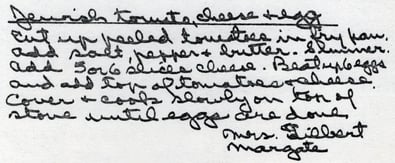 Jewish tomato, cheese & egg
Cut up peeled tomatoes in fry pan.
Add salt, pepper & butter. Simmer.
Add 5 or 6 slices cheese. Beat up 6 eggs
and add top of tomatoes & cheese.
Cover & cook slowly on top of
stove until eggs are done.
Mrs. Gilbert
Margate